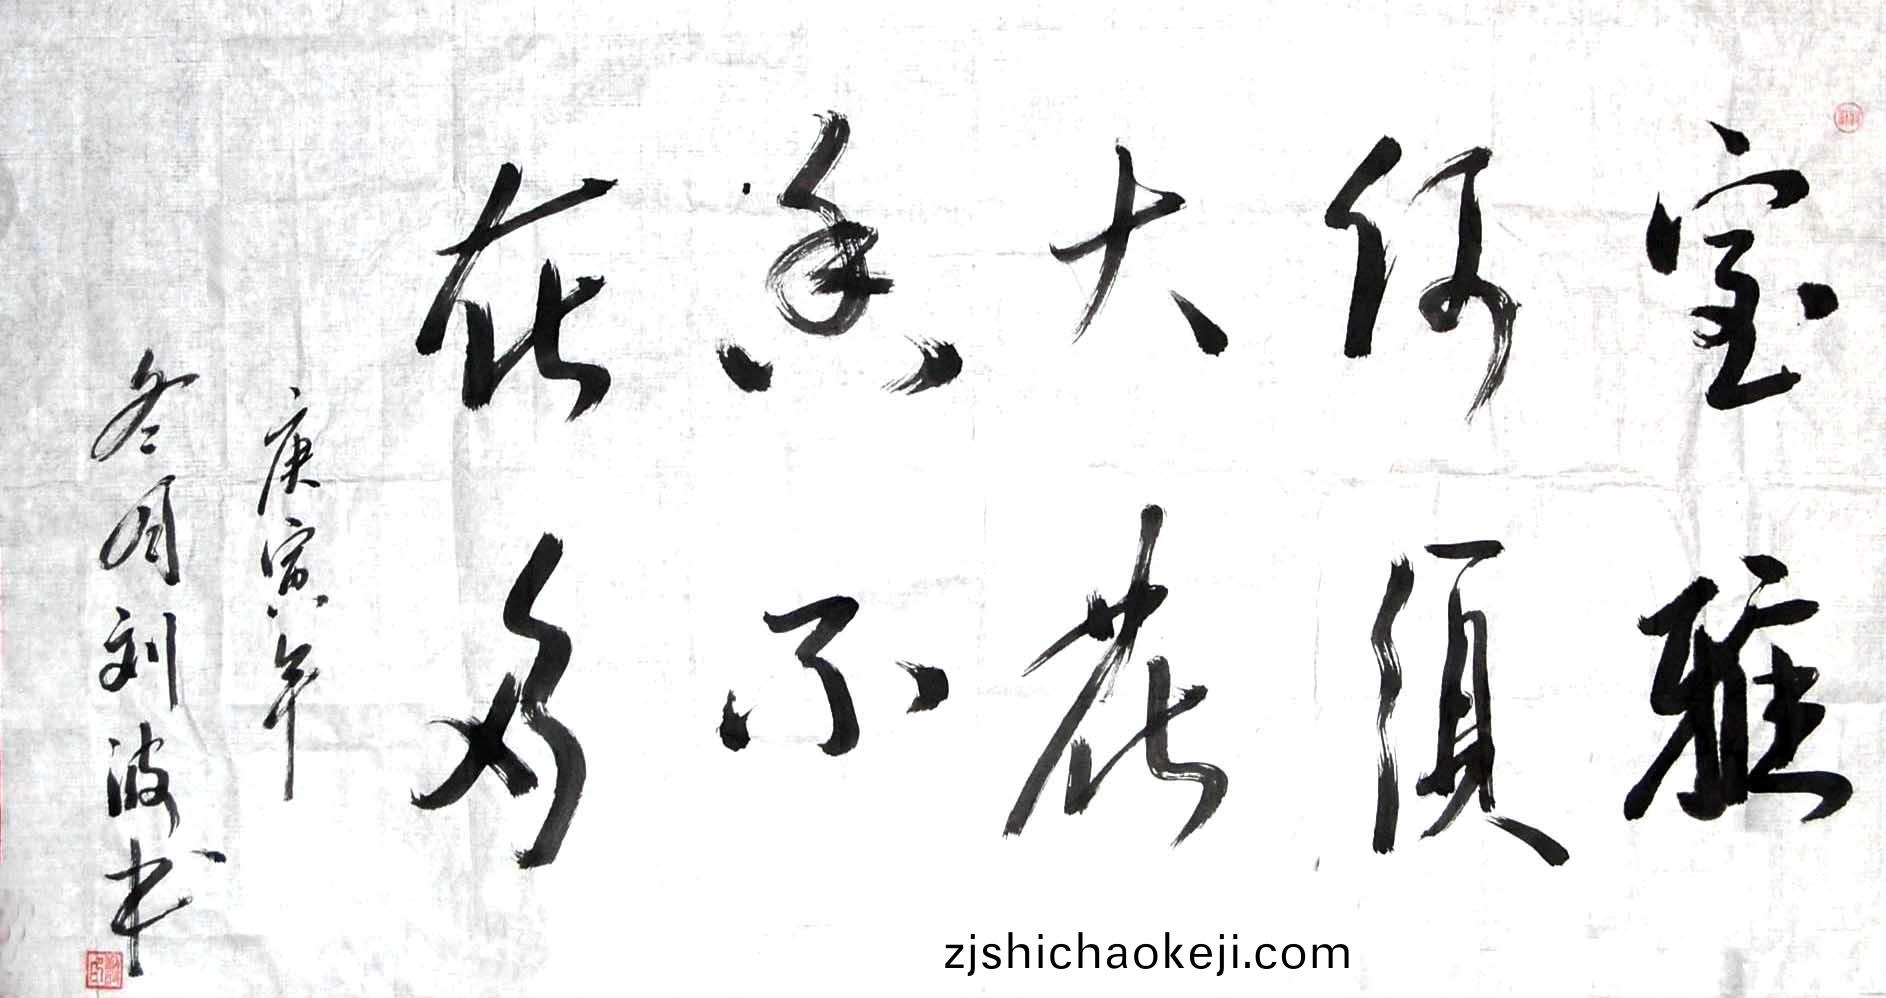 室雅
何须
大花
香不
在多
庚寅年
冬月刘波书
zjshichaokeji.com